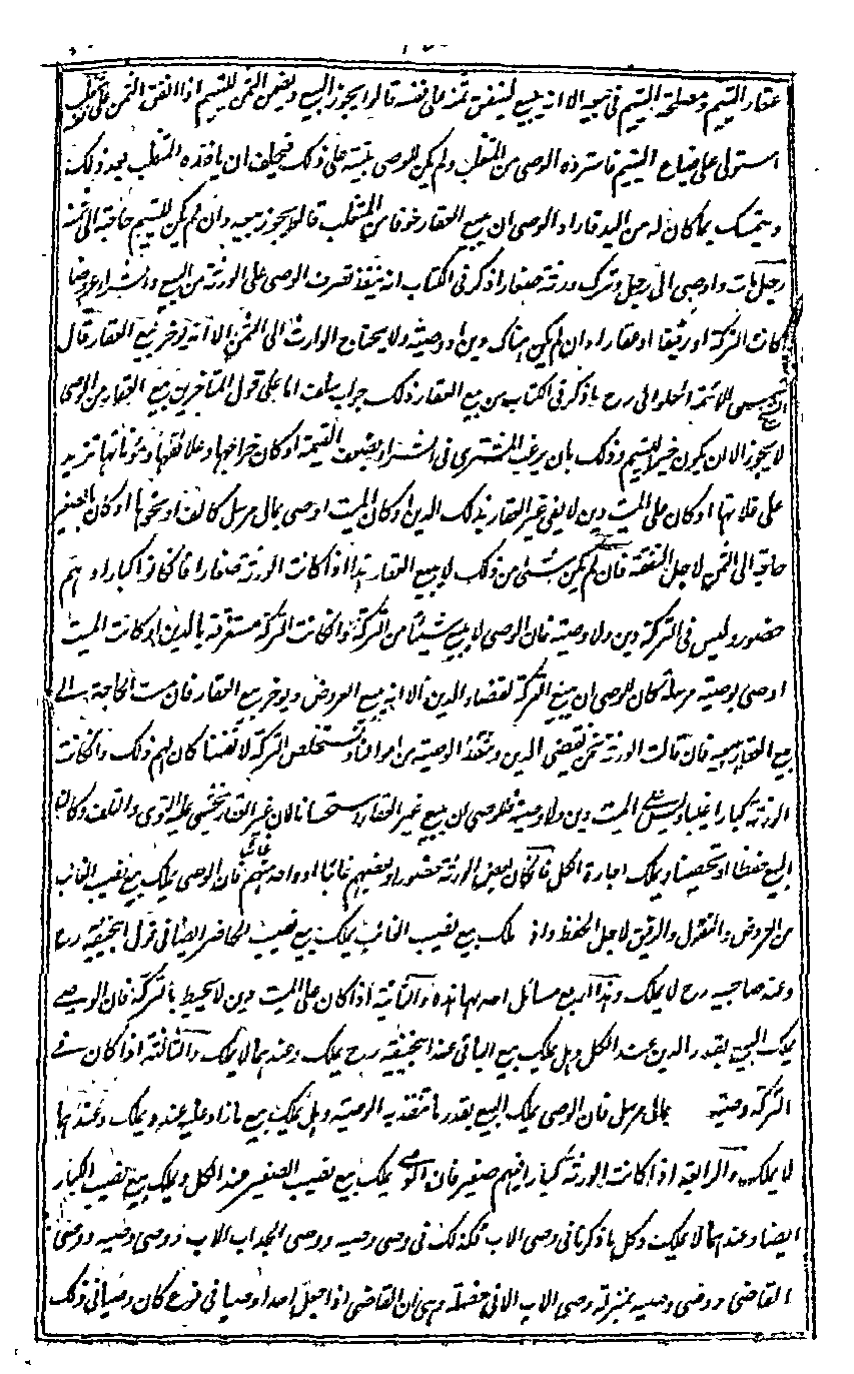 عقار اليتيم ومصلحة اليتيم في بيعه الا انه يبيع لينفق ثمنه على نفسه قالوا يجوز البيع ويضمن الثمن لليتيم اذا انفق الثمن على نفسه متغلب
استولى على ضياع اليتيم فاسترده الوصي من المتغلب ولم يكن للوصي بينة على ذلك فيخاف ان ياخذه المتغلب بعد ذلك
ويتمسك بما كان له من اليد فاراد الوصي ان يبيع العقار خوفا من المتغلب قالوا يجوز بيعه وان لم يكن لليتيم حاجة الى ثمنه
رجل مات واوصى الى رجل وترك ورثة صغارا ذكر في الكتاب انه ينفذ تصرف الوصي على الورثة من البيع والشراء عروضا
كانت التركة او رقيقا او عقارا وان لم يكن هناك دين او وصية ولا يحتاج الوارث الى الثمن الا انه يوخر بيع العقار قال
الشيخ شمس الائمة الحلواني رح ما ذكر في الكتاب من بيع العقار ذلك جواب سلف اما على قول المتاخرين بيع العقار من الوصي
لا يجوز الا ان يكون خيرا لليتيم وذلك بان يرغب المشتري في الشراء بضعف القيمة او كان خراجها وعلائقها ومؤناتها تزيد
على غلاتها او كان على الميت دين لا يفي غير العقار بذلك الدين او كان الميت اوصى بمال مرسل كالف او نحوها او كان بالصغير
حاجة الى الثمن لاجل النفقة فان لم يكن شئ من ذلك لا يبيع العقار هذا اذا كانت الورثة صغارا فان كانوا كبارا وهم
حضور وليس في التركة دين ولا وصية فان الوصي لا يبيع شيئا من التركة وانكانت التركة مستغرقة بالدين او كانت الميت
اوصى بوصية مرسلة كان للوصي ان يبيع التركة لقضاء الدين الا انه يبيع العروض ويوخر بيع العقار فان مست الحاجة الى
بيع العقار يبيعه فان قالت الورثة نحن نقضي الدين وننفذ الوصية من اموالنا ونستخلص التركة لانفسنا كان لهم ذلك وانكانت
الورثة كبارا غيبا وليس على الميت دين ولا وصية فللوصي ان يبيع غير العقار استحسانا لان غير العقار يخشى عليه التوى والتلف وكان
البيع حفظا وتحصينا ويملك اجارة الكل فان كان بعض الورثة حضورا وبعضهم غائبا او واحد منهم غائبا فان الوصي يملك بيع نصيب الغائب
من العروض والمنقول والرقيق لاجل الحفظ واذ ملك بيع نصيب الغائب يملك بيع نصيب الحاضر ايضا في قول ابيحنيفة رح
وعند صاحبيه رح لا يملك وهذا اربع مسائل احدىها هذه والثانية اذا كان على الميت دين لا يحيط بالتركة فان الوصي
يملك البيع بقدر الدين عند الكل وهل يملك بيع الباقي عند ابيحنيفة رح يملك وعندهما لا يملك والثالثة اذا كان في
التركة وصية بمال مرسل فان الوصي يملك البيع بقدر ما تنفذ به الوصية وهل يملك بيع ما زاد عليه عنده يملك وعندهما
لا يملك والرابعة اذا كانت الورثة كبارا فيهم صغير فان الوصي يملك بيع نصيب الصغير عند الكل ويملك بيع نصيب الكبار
ايضا وعندهما لا يملك وكل ما ذكرنا في وصي الاب فكذلك في وصي وصيه ووصي الجد اب الاب ووصي وصيه ووصي
القاضي ووصي وصيه بمنزلة وصي الاب الا في خصلة وهي ان القاضي اذا جعل احدا وصيا في نوع كان وصيا في ذلك